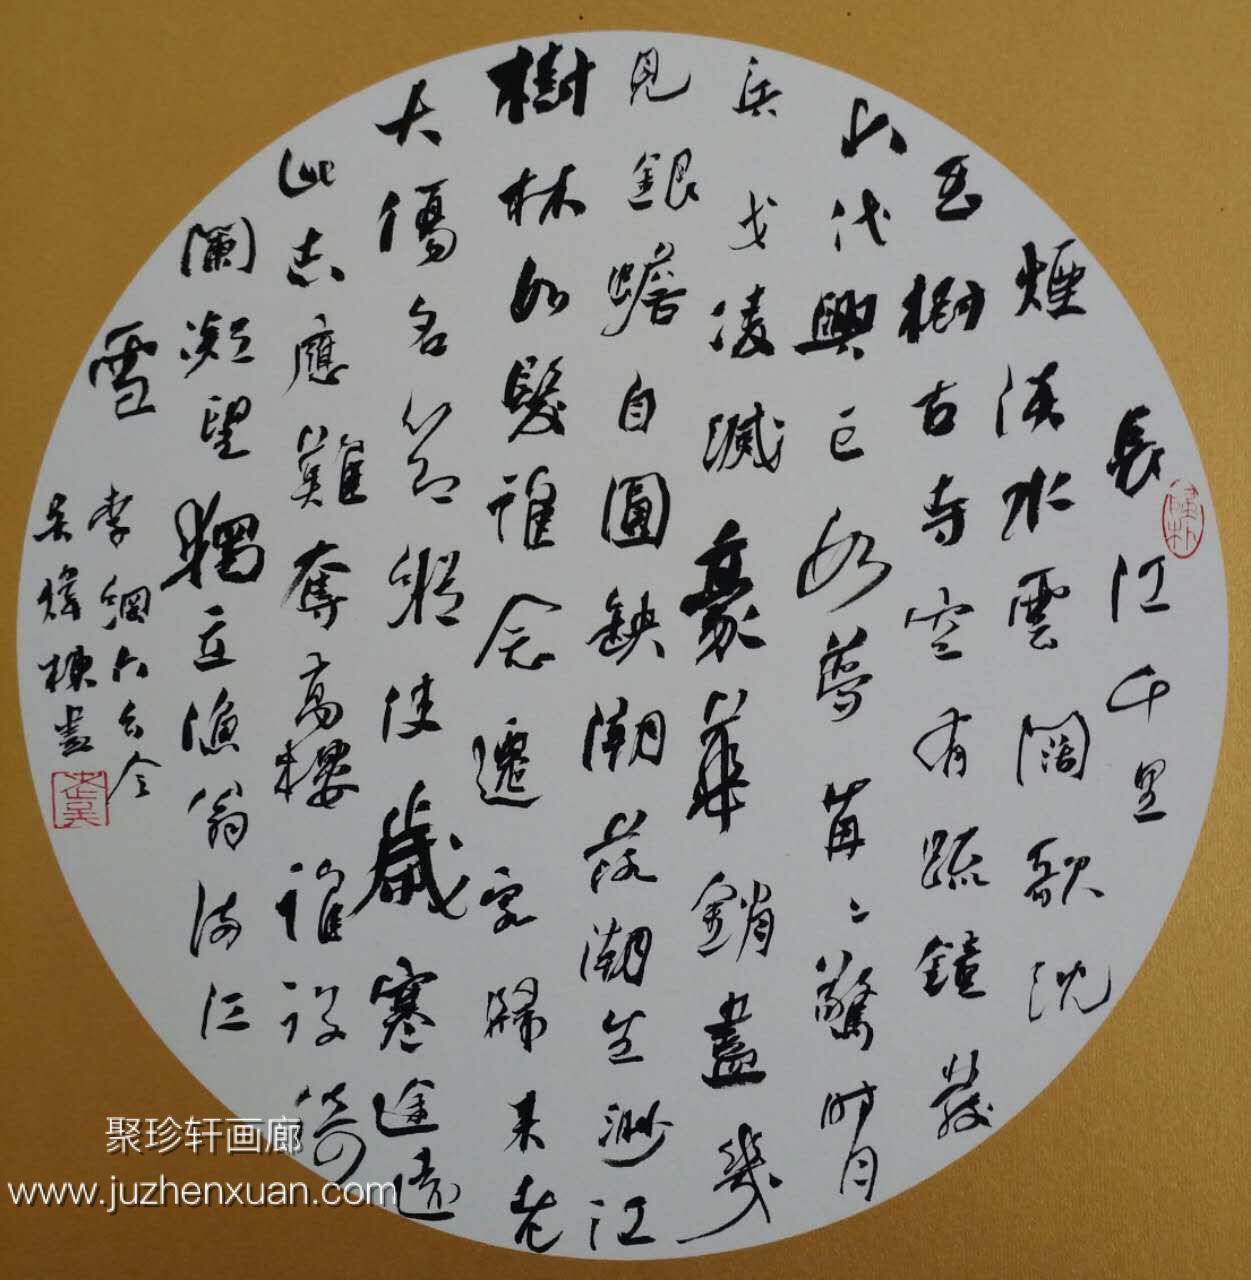 長江千里
煙淡水雲闊歌沈
玉樹古寺空有疏鐘發
六代興亡如夢苒々驚時月
兵戈凌滅豪華銷盡幾
見銀蟾自圓缺潮落潮生渺江
樹林如髮誰念遷客歸來老
大傷名節縱使歲寒途遠
此志應難奪高樓誰設倚
瀾凝望獨立漁翁滿江
雪
李綱六么令
吳煒棟書
聚珍轩画廊
www.juzhenxuan.com